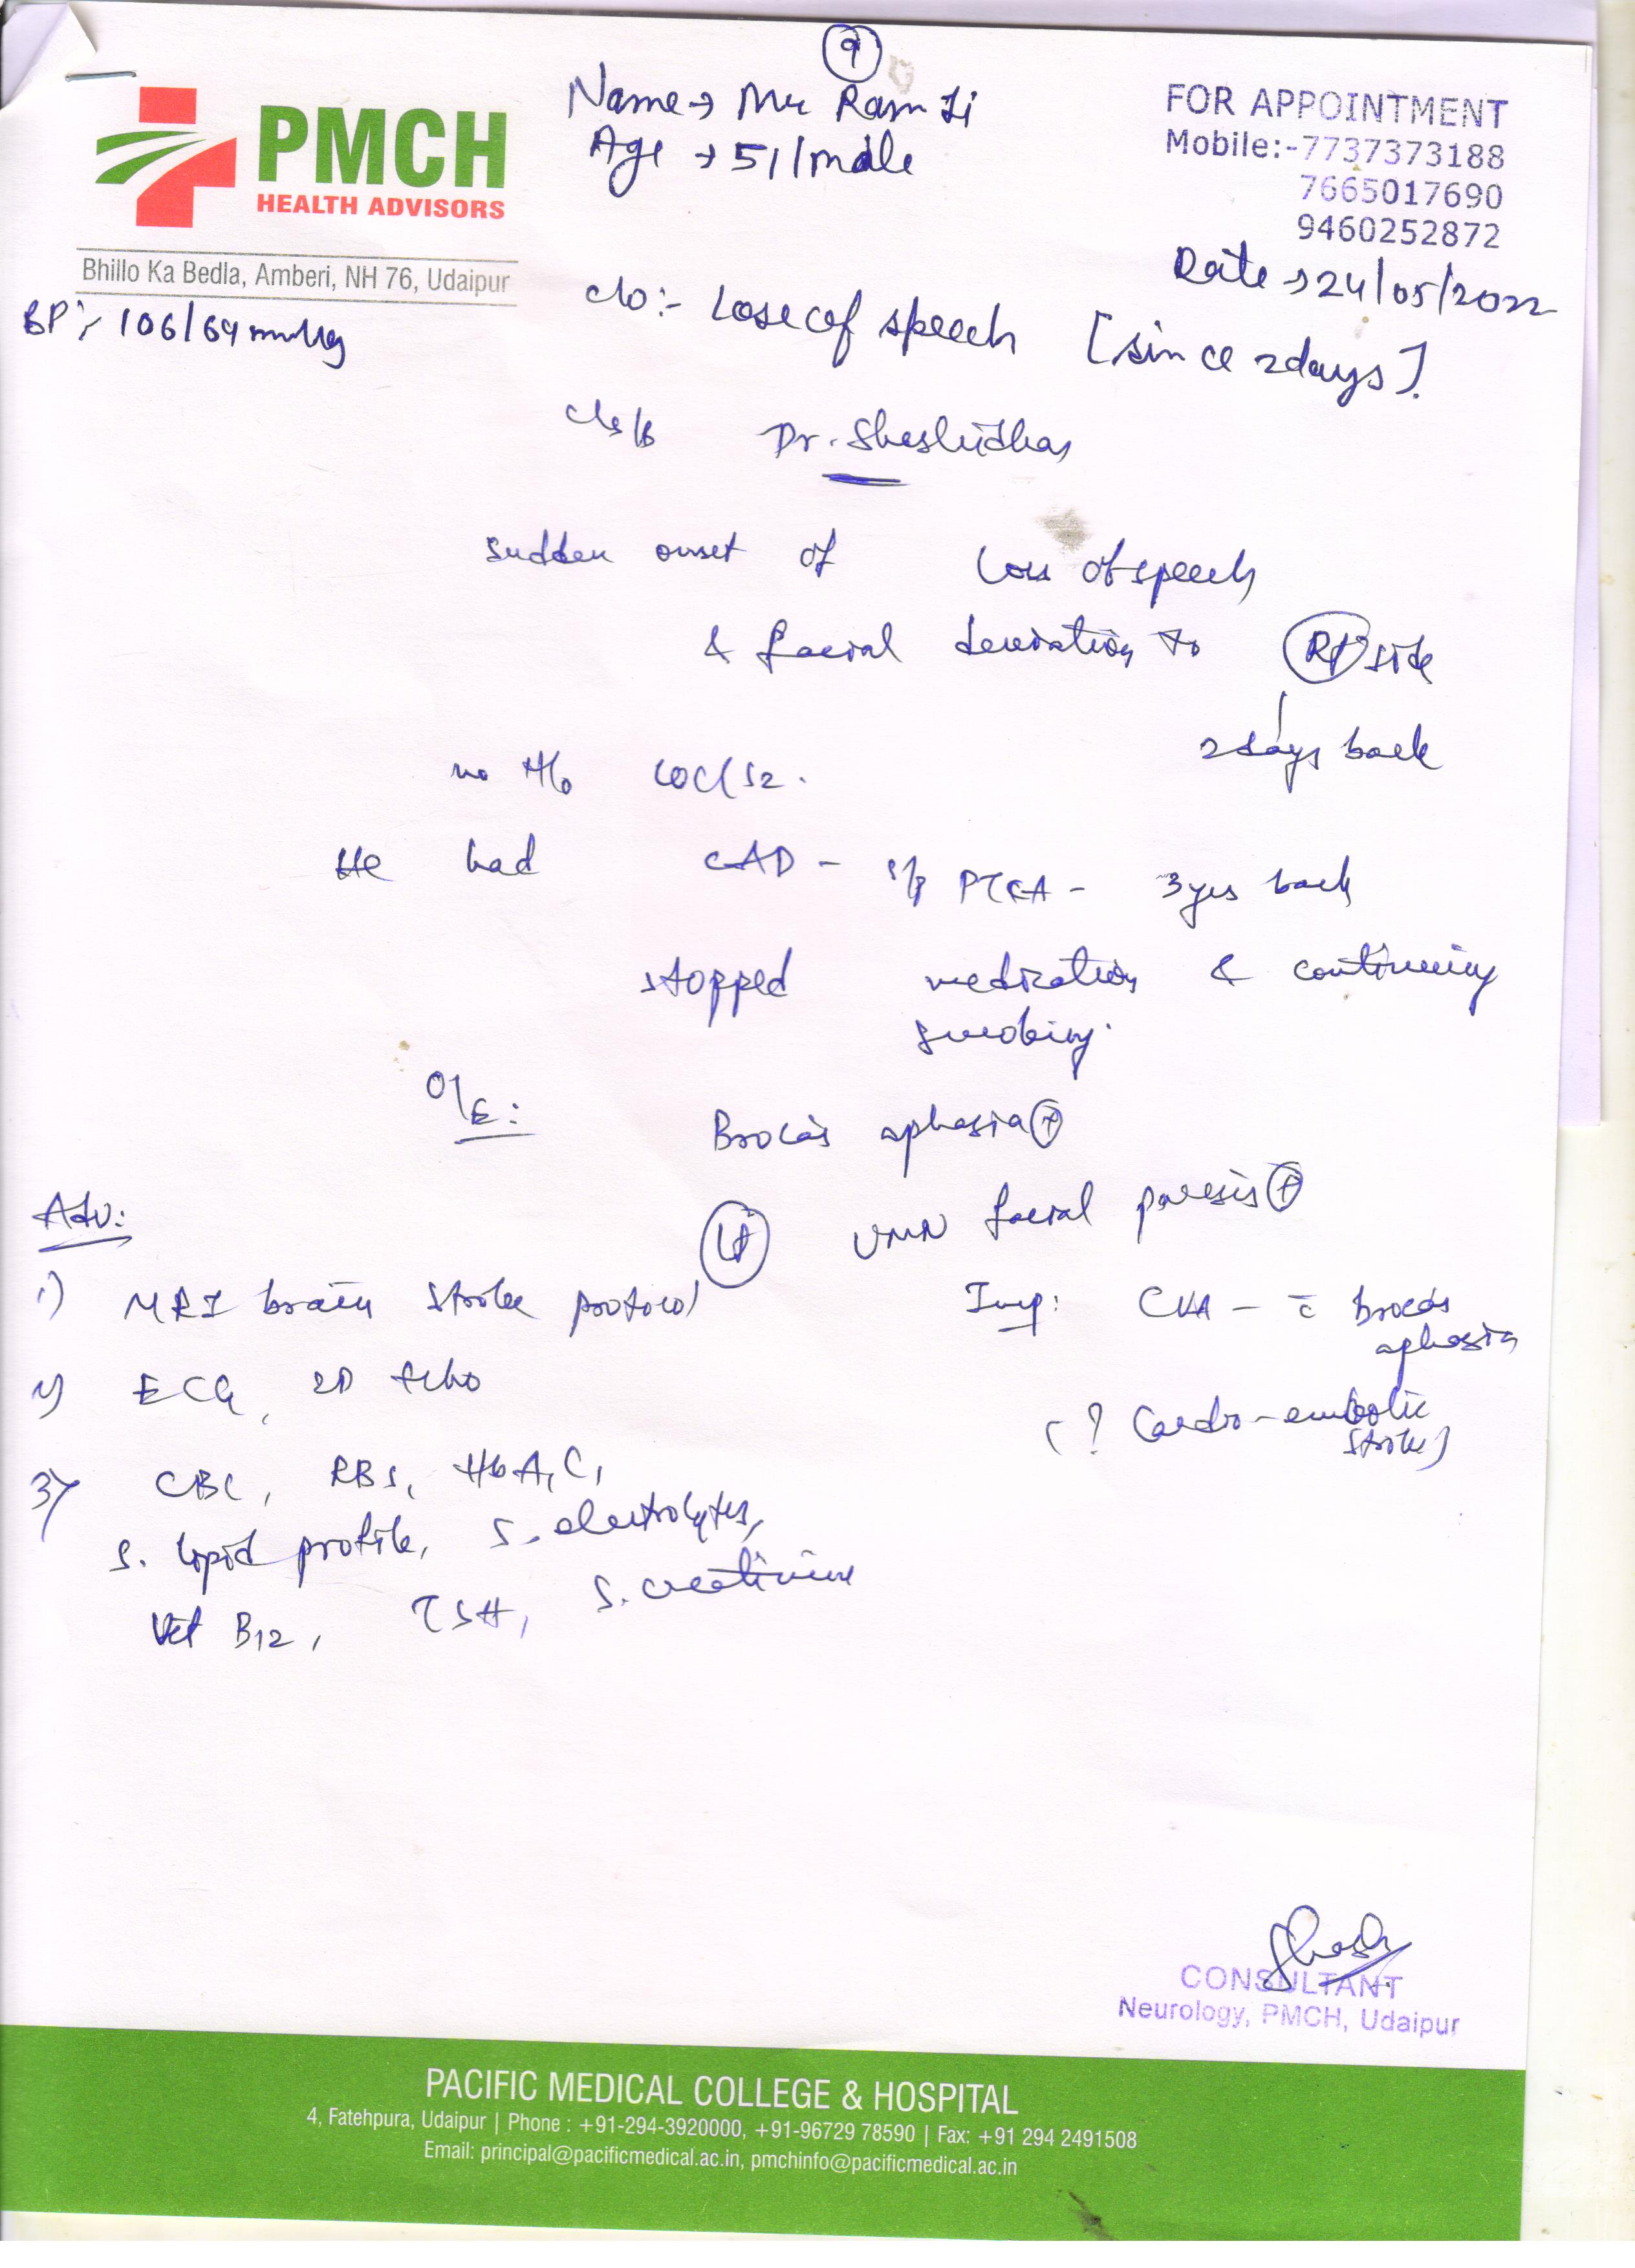 9
Name → Mr Ram Ji
Age → 51/male
PMCH
HEALTH ADVISORS
Bhillo Ka Bedla, Amberi, NH 76, Udaipur
FOR APPOINTMENT
Mobile:-7737373188
7665017690
9460252872
Date → 24/05/2022
BP:- 106/64 mmHg
c/o:- Lose of speech [since 2days].
c/s/b Dr. Sheshidhar
sudden onset of loss of speech
& facial deviation to Rt side
2 days back
no H/o LOC/Sz.
He had CAD - s/p PTCA - 3 yrs back
stopped medication & continuing
smoking.
O/E:
Broca's aphasia +
Lt UMN facial paresis +
Adv:
1) MRI brain stroke protocol
Imp: CVA - c̄ broca's
aphasia
2) ECG, 2D Echo
(? Cardio-embolic
stroke)
3) CBC, RBS, HbA1C,
S. lipid profile, S. electrolytes,
Vit B12, TSH, S. creatinine
CONSULTANT
Neurology, PMCH, Udaipur
PACIFIC MEDICAL COLLEGE & HOSPITAL
4, Fatehpura, Udaipur | Phone : +91-294-3920000, +91-96729 78590 | Fax: +91 294 2491508
Email: principal@pacificmedical.ac.in, pmchinfo@pacificmedical.ac.in